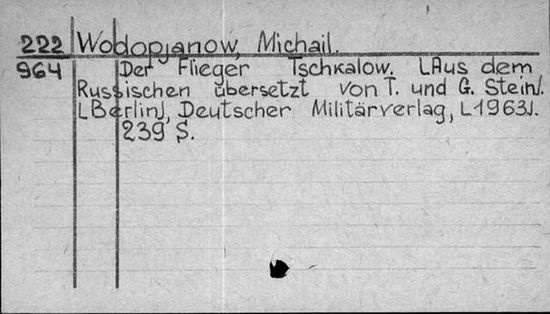 222 Wodopjanow, Michail.
964 Der Flieger Tschkalow. [Aus dem
Russischen übersetzt von T. und G. Stein].
[Berlin], Deutscher Militärverlag, [1963].
239 S.